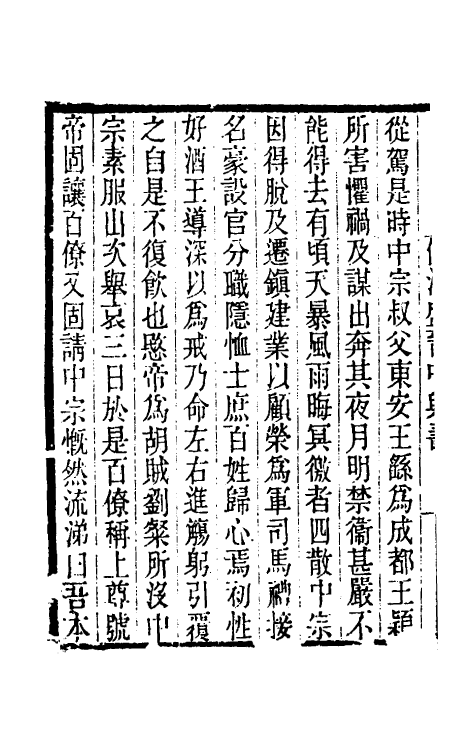 從駕是時中宗叔父東安王繇爲成都王穎
所害懼禍及謀出奔其夜月明禁衞甚嚴不
能得去有頃天暴風雨晦冥徼者四散中宗
因得脫及遷鎮建業以顧榮爲軍司馬禮接
名豪設官分職隱恤士庶百姓歸心焉初性
好酒王導深以爲戒乃命左右進觴躬引覆
之自是不復飲也愍帝爲胡賊劉粲所沒中
宗素服出次舉哀三日於是百僚稱上尊號
帝固讓百僚又固請中宗慨然流涕曰吾本